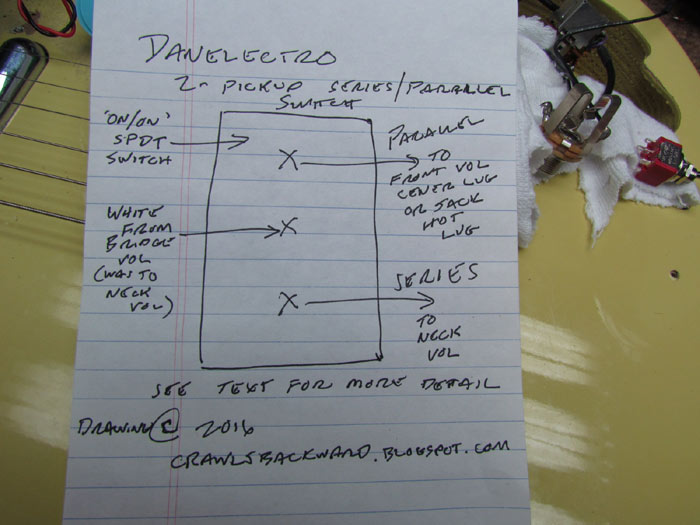 DANELECTRO
2- PICKUP SERIES/PARALLEL
SWITCH
'ON/ON'
SPDT
SWITCH
PARALLEL
TO
FRONT VOL
CENER LUG
OR JACK
HOT
LUG
WHITE
FROM
BRIDGE
VOL
(WAS TO
NECK
VOL)
X
X
X
SERIES
TO
NECK
VOL
SEE TEXT FOR MORE DETAIL
DRAWING © 2016
CRAWLSBACKWARD.BLOGSPOT.COM